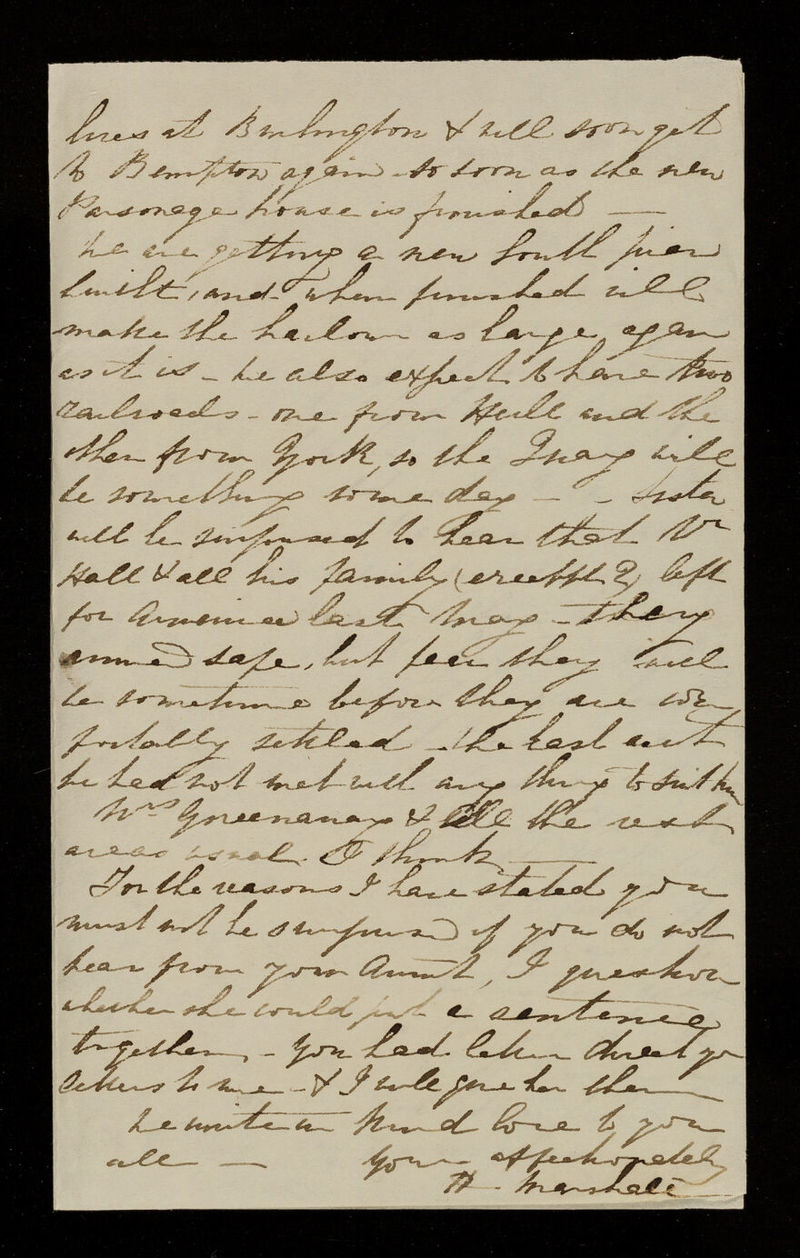 lives at Burlington & will soon get
to Bempton again so soon as the new
Parsonage house is finished —
We are getting a new South pier
built, and when finished will
make the harbour as large again
as it is – We also expect to have two
railroads – one from Hull and the
other from York, so the Quay will
be something some day – – Sister
will be surprised to hear that Mr
Hall & all his family (except 2) left
for America last May – They
arrived safe, but fear they will
be sometime before they are com
fortably settled – the last acct
he had not met with any thing to suit him
Mrs Greenaway & all the rest
are as usual. I think —
For the reasons I have stated you
must not be surprised if you do not
hear from your Aunt, I question
whether she could put a sentence
together, – You had better direct yr
letters to me – & I will give her them
We unite in kind love to you
all — Yours affectionately
H Marshall